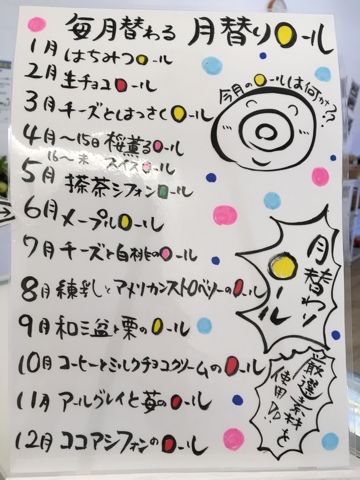 毎月替わる 月替りロール
今月のロールは何かな??
1月 はちみつロール
2月 生チョコロール
3月 チーズとはっさくロール
4月 〜15日 桜薫るロール
16〜末 スイスロール
5月 抹茶シフォンロール
6月 メープルロール
7月 チーズと白桃のロール
8月 練乳とアメリカンストロベリーのロール
9月 和三盆と栗のロール
10月 コーヒーとミルクチョコクリームのロール
11月 アールグレイと苺のロール
12月 ココアシフォンのロール
月替わり
ロール
厳選素材を
使用